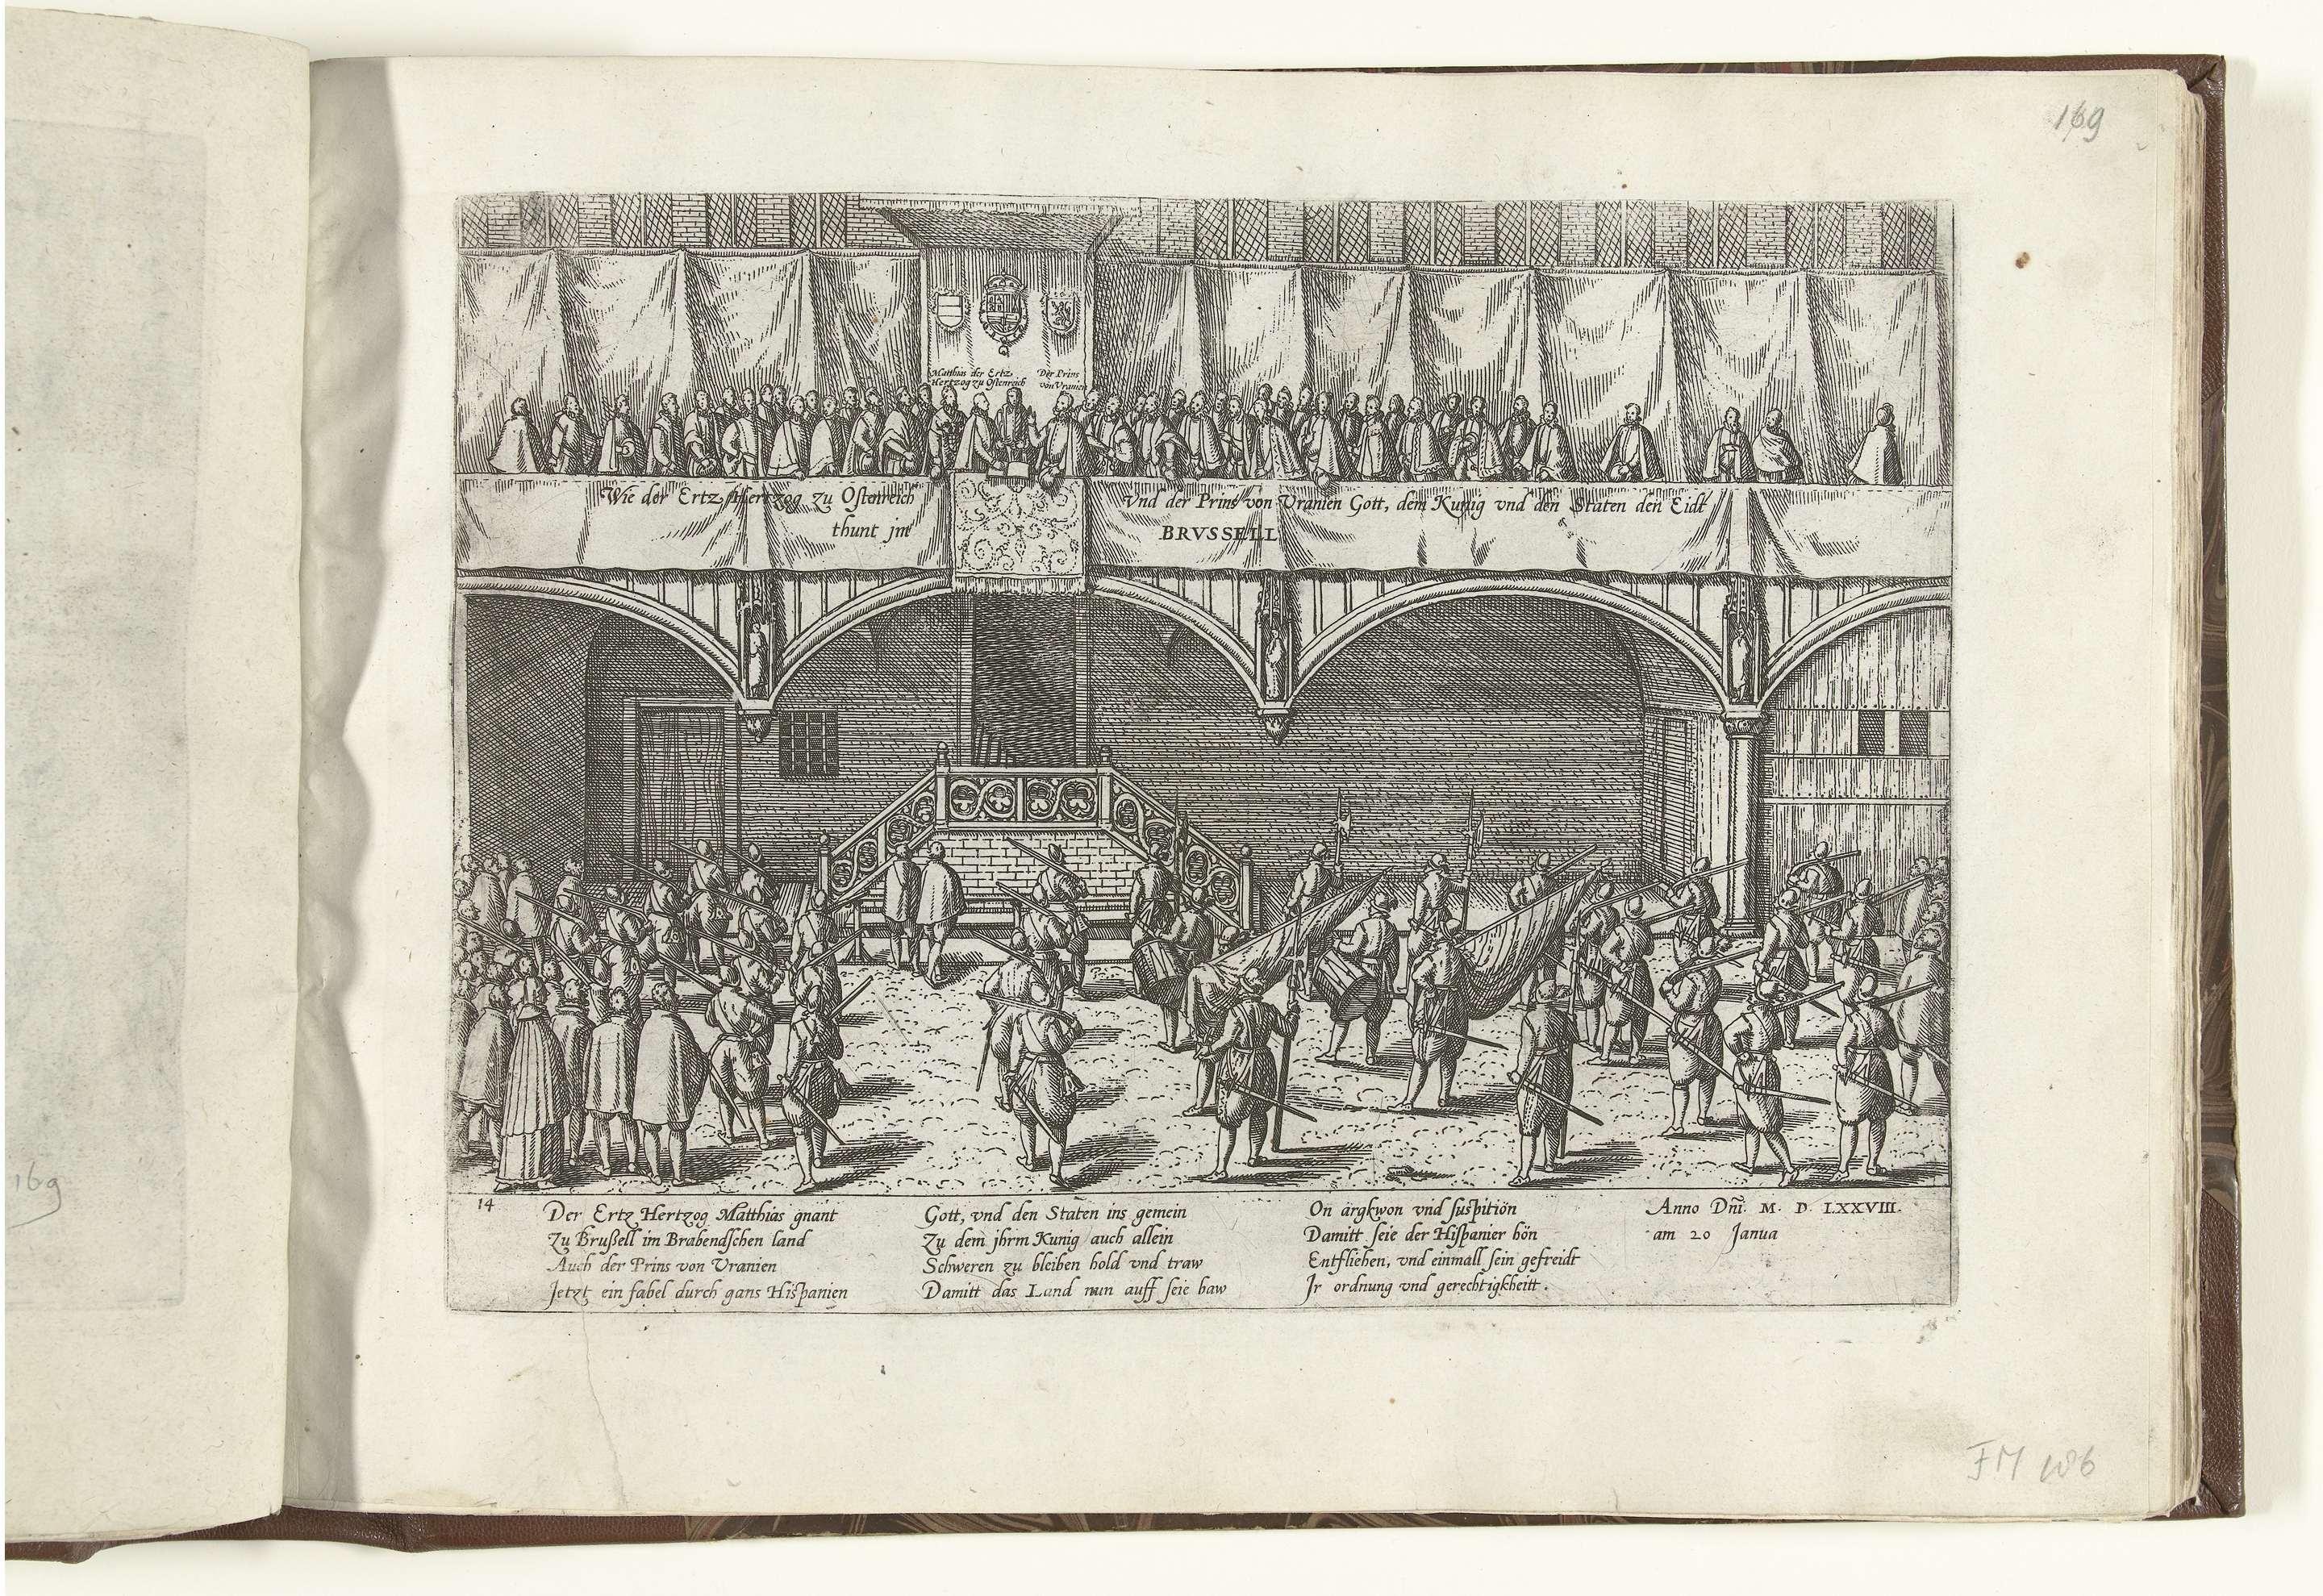 169
Matthias der Ertz
Hertzog zu Ostenreich
Der Prins
von Vranien
Wie der Ertz Hertzog zu Ostenreich
thunt jm
Vnd der Prins von Vranien Gott, dem Kunig vnd den Staten den Eidt
BRVSSELL
14
Der Ertz Hertzog Matthias gnant
Zu Brußell im Brabendschen land
Auch der Prins von Vranien
Jetzt ein fabel durch gans Hispanien
Gott, vnd den Staten ins gemein
Zu dem jhrm Kunig auch allein
Schweren zu bleiben hold vnd traw
Damitt das Land nun auff seie baw
On argkwon vnd suspition
Damitt seie der Hispanier hön
Entfliehen, vnd einmall sein gefreidt
Ir ordnung vnd gerechtigkheitt.
Anno Dñi. M. D. LXXVIII.
am 20 Janua
169
FM